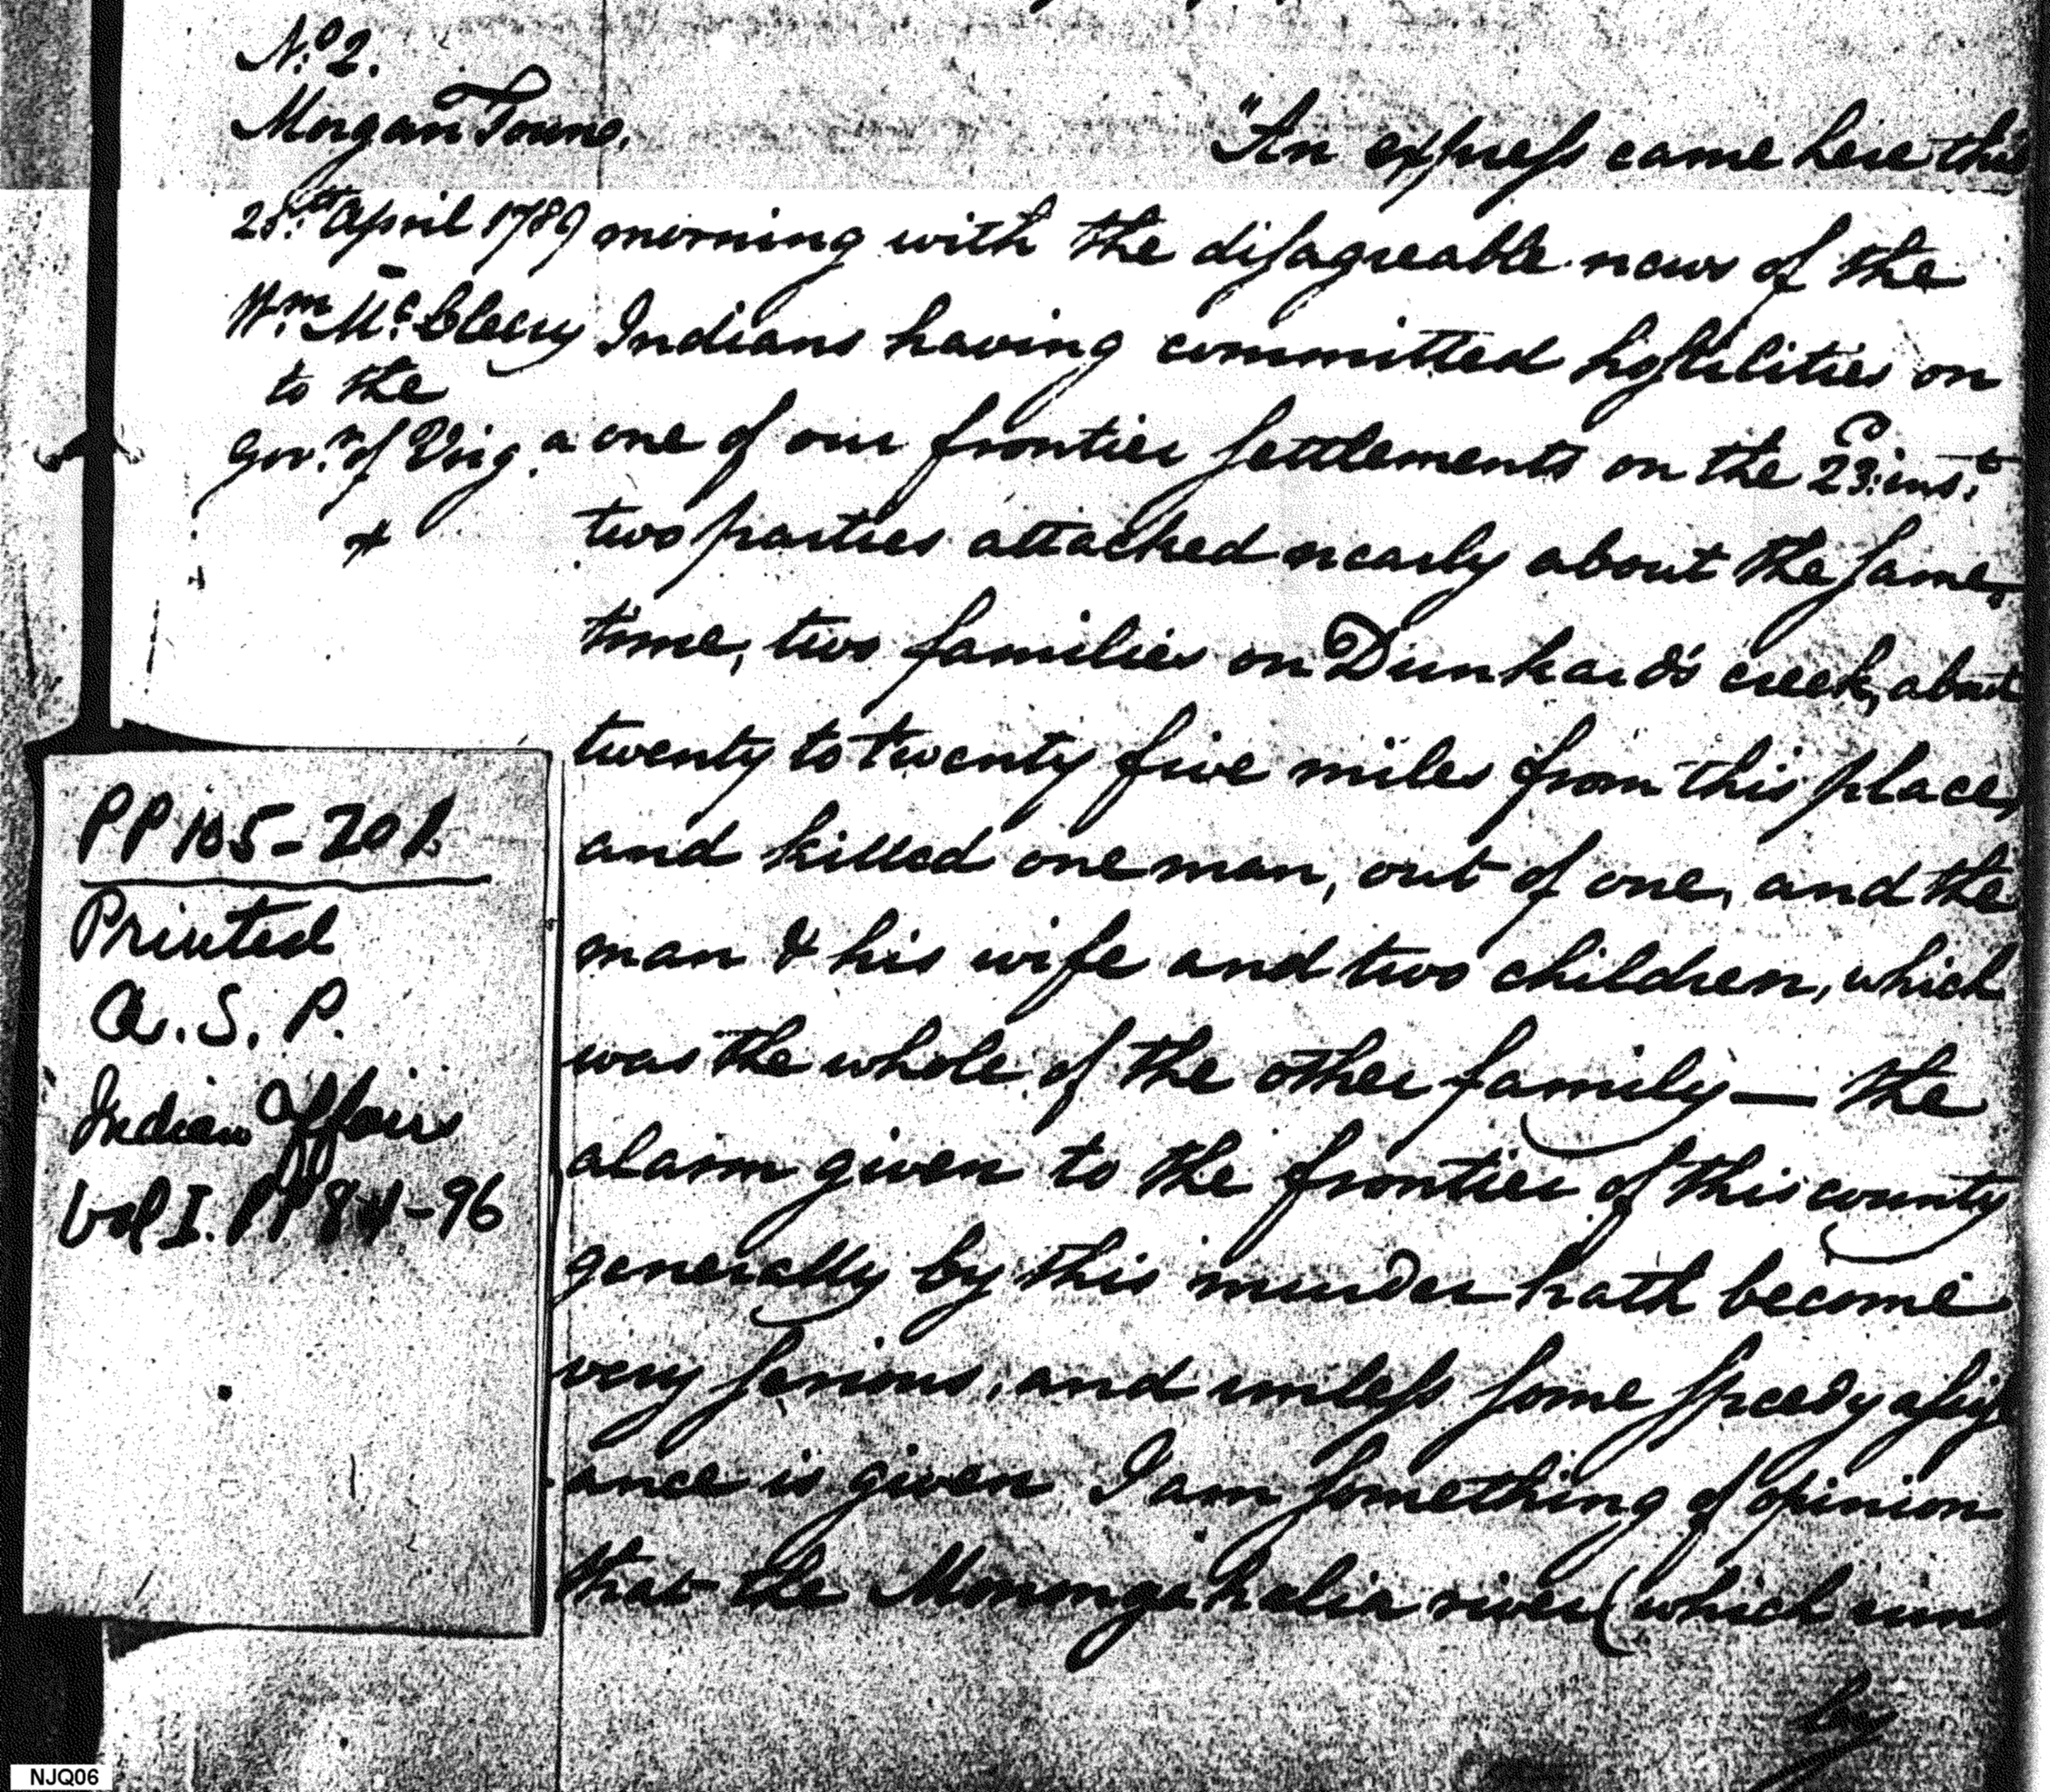 No. 2.
Morgan Town.
25th. April 1789
Wm. Mc.Cleery
to the
Gov.r of Virg.a
"An express came here this
morning with the disagreable news of the
Indians having committed hostilities on
one of our frontier settlements on the 23: inst.
two parties attacked nearly about the same
time, two families on Dunkard's creek, about
twenty to twenty five miles from this place,
and killed one man, out of one, and the
man & his wife and two children, which
was the whole of the other family — the
alarm given to the frontier of this county
generally by this murder hath become
very serious, and unless some speedy assist
ance is given I am something of opinion
that the Monongahalia river (which runs
by
PP 105-201.
Printed
A. S. P.
Indian Affairs
Vol I. PP 84-96
NJQ06